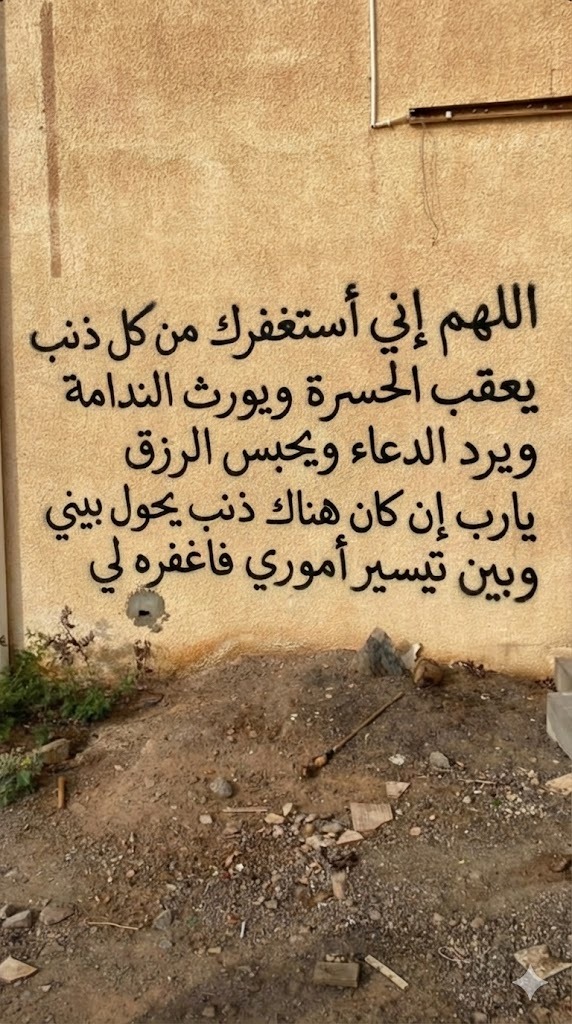 اللهم إني أستغفرك من كل ذنب
يعقب الحسرة ويورث الندامة
ويرد الدعاء ويحبس الرزق
يارب إن كان هناك ذنب يحول بيني
وبين تيسير أموري فاغفره لي